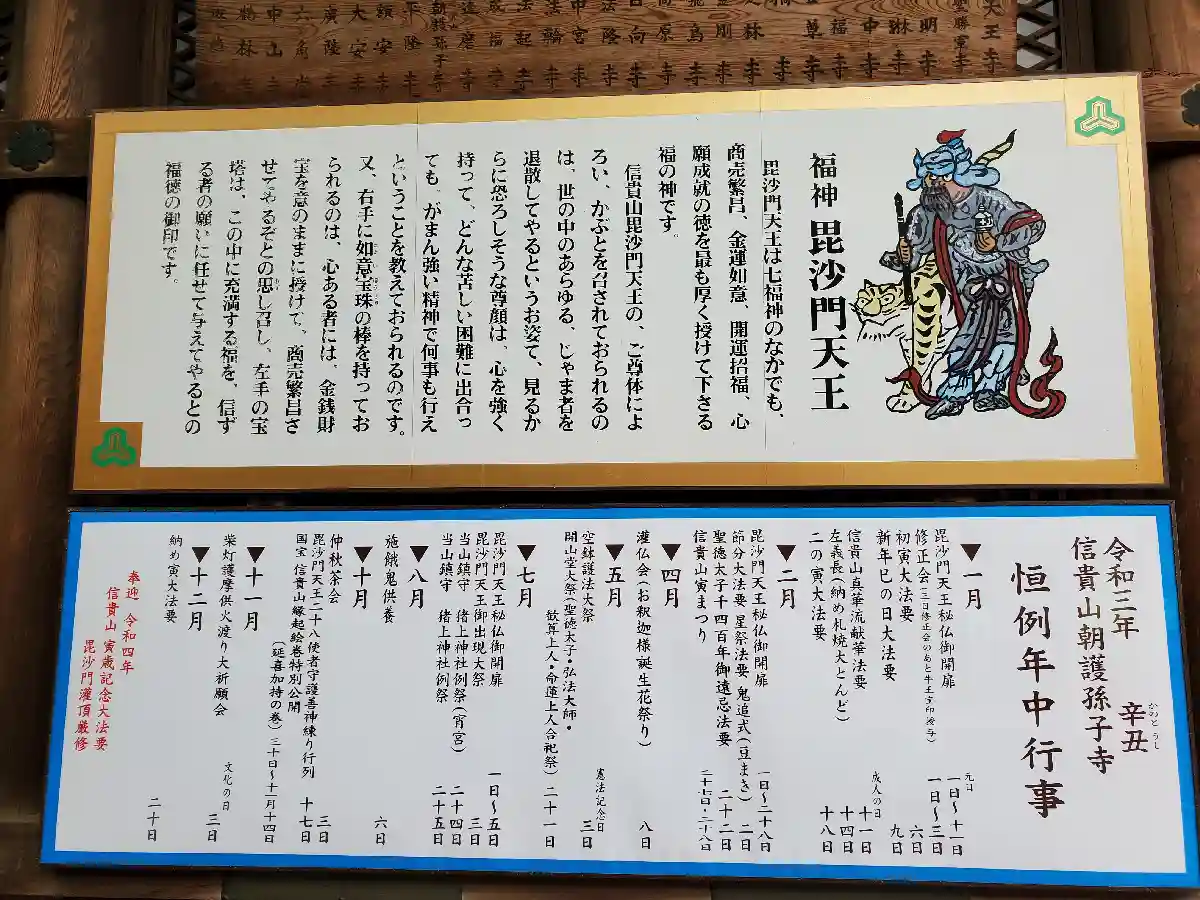 福神 毘沙門天王
毘沙門天王は七福神のなかでも、
商売繁昌、金運如意、開運招福、心
願成就の徳を最も厚く授けて下さる
福の神です。
信貴山毘沙門天王の、ご尊体によ
ろい、かぶとを召されておられるの
は、世の中のあらゆる、じゃま者を
退散してやるというお姿で、見るか
らに恐ろしそうな尊顔は、心を強く
持って、どんな苦しい困難に出合っ
ても、がまん強い精神で何事も行え
ということを教えておられるのです。
又、右手に如意宝珠の棒を持ってお
られるのは、心ある者には、金銭財
宝を意のままに授けて、商売繁昌さ
せてやるぞとの思し召し、左手の宝
塔は、この中に充満する福を、信ず
る者の願いに任せて与えてやるとの
福徳の御印です。
令和三年 辛丑
かのと うし
信貴山朝護孫子寺
恒例年中行事
▼一月
毘沙門天王秘仏御開扉 元日 一日〜十一日
修正会(三日修正会のあと牛王宝印授与) 一日〜三日
初寅大法要 六日
新年巳の日大法要 九日
信貴山真華流献華法要 成人の日 十一日
左義長(納め札焼大とんど) 十四日
二の寅大法要 十八日
▼二月
毘沙門天王秘仏御開扉 一日〜二十八日
節分大法要 星祭法要 鬼追式(豆まき) 二日
聖徳太子千四百年御遠忌法要 二十二日
信貴山寅まつり 二十七日・二十八日
▼四月
灌仏会(お釈迦様誕生花祭り) 八日
▼五月
空鉢護法大祭 憲法記念日 三日
開山堂大祭(聖徳太子・弘法大師・
歓算上人・命蓮上人合祀祭) 二十一日
▼七月
毘沙門天王秘仏御開扉 一日〜五日
毘沙門天王御出現大祭 三日
当山鎮守 猪上神社例祭(宵宮) 二十四日
当山鎮守 猪上神社例祭 二十五日
▼八月
施餓鬼供養 六日
▼十月
仲秋茶会 三日
毘沙門天王二十八使者守護善神練り行列 十七日
国宝 信貴山縁起絵巻特別公開
(延喜加持の巻) 三十日〜十一月十四日
▼十一月
柴灯護摩供火渡り大祈願会 文化の日 三日
▼十二月
納め寅大法要 二十日
奉迎 令和四年
信貴山 寅歳記念大法要
毘沙門灌頂厳修